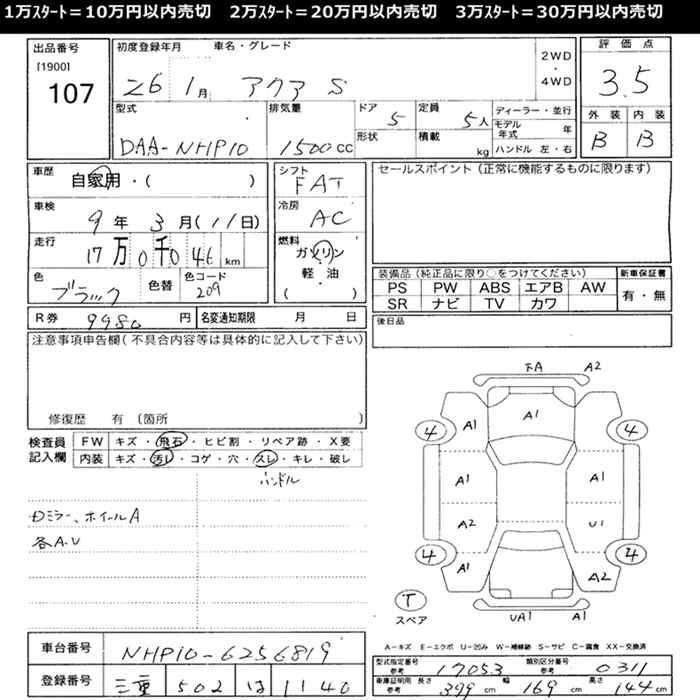 1万スタート=10万円以内売切　2万スタート=20万円以内売切　3万スタート=30万円以内売切
出品番号
[1900]
107
初度登録年月　車名・グレード
26　1月　アクア S
2WD・4WD
評価点
3.5
型式
DAA-NHP10
排気量
1500 CC
ドア 5
形状
定員 5人
積載 kg
ディーラー・並行
モデル年式 年
ハンドル 左・右
外装　内装
B　B
車歴
自家用・(　)
車検
9年 3月(11日)
走行
17万0千046km
色
ブラック
色替
色コード
209
シフト
FAT
冷房
AC
燃料
ガソリン
軽油
(　)
セールスポイント(正常に機能するものに限ります)
装備品(純正品に限り○をつけてください)
PS　PW　ABS　エアB　AW
SR　ナビ　TV　カワ
新車保証書
有・無
R券 9980円
名変通知期限　月　日
後日品
注意事項申告欄(不具合内容等は具体的に記入して下さい)
修復歴　有(箇所　)
検査員記入欄
FW　キズ・飛石・ヒビ割・リペア跡・X要
内装　キズ・汚レ・コゲ・穴・スレ・キレ・破レ
ハンドル
ミラー、ホイールA
各A.U
FA　A2
A1
4　A1　A1　4
A1　A1
A2　U1
4　A1　A2　4
T
スペア
UA1　A1
A-キズ　E-エクボ　U-凹み　W-補修跡　S-サビ　C-腐食　XX-交換済
車台番号
NHP10-6256819
登録番号
三重　502　は　1140
型式指定番号
参考
17053
類別区分番号
参考
0311
車庫証明用 参考
長さ 399cm　幅 169cm　高さ 144cm